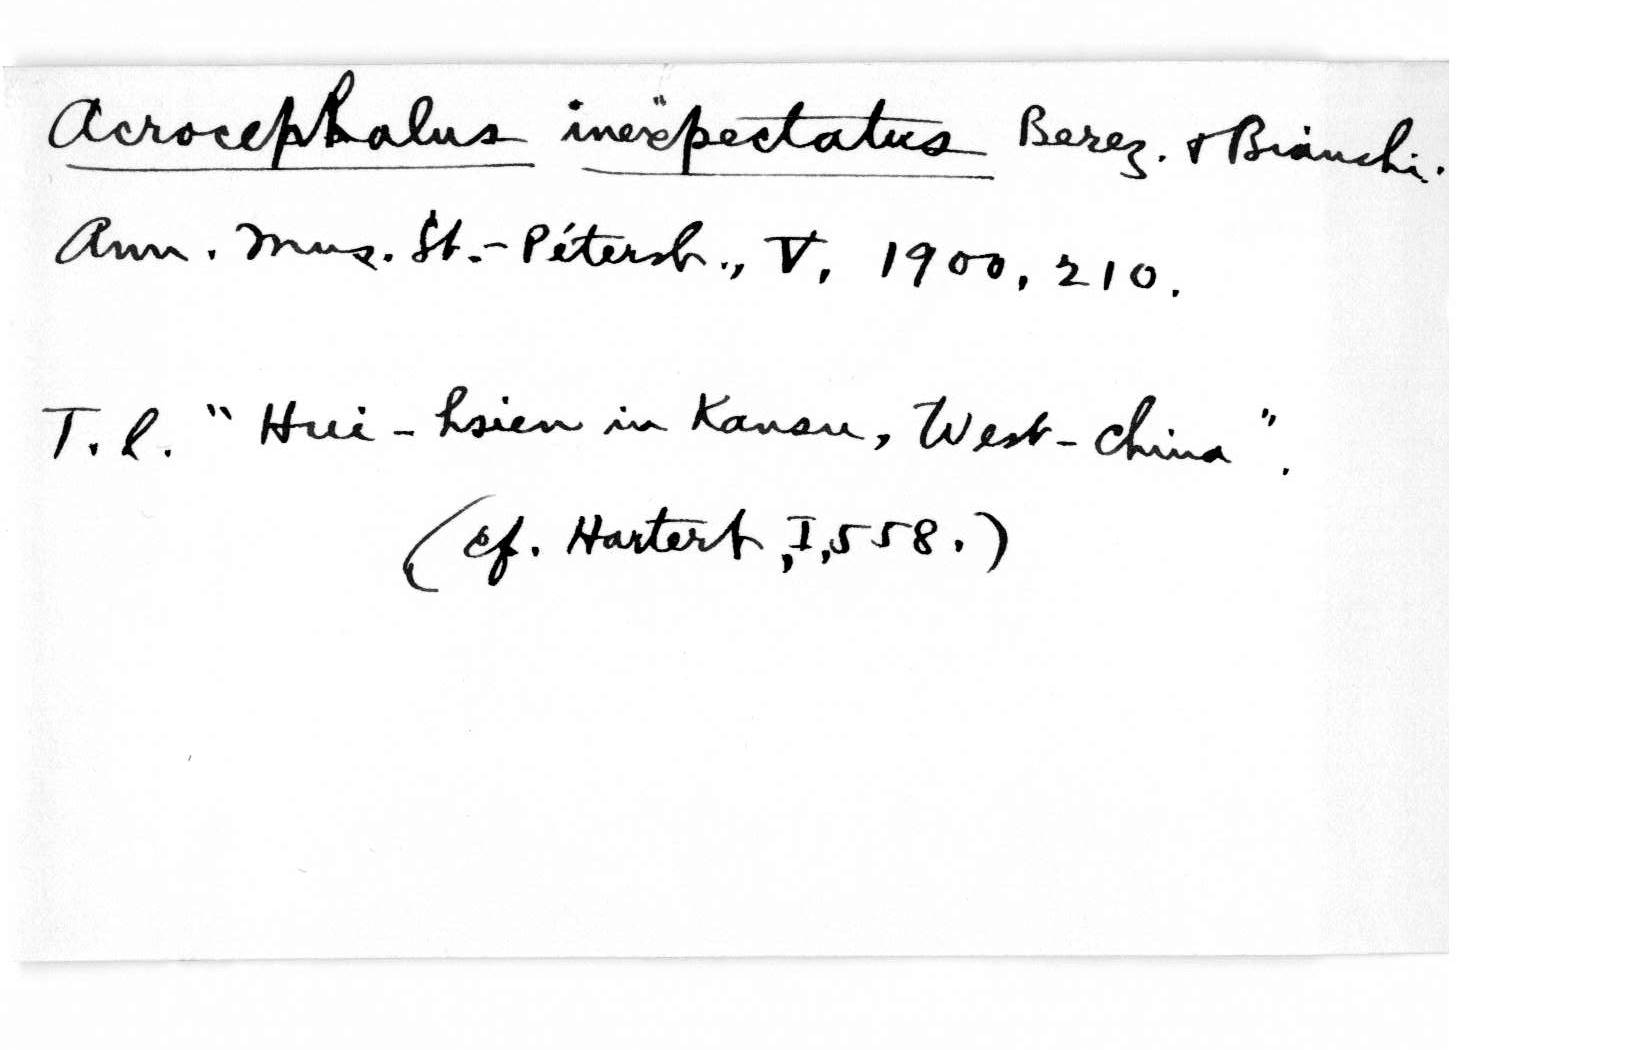 Acrocephalus inexpectatus Berez. & Bianchi.
Ann. Mus. St.-Pétersb., V, 1900, 210.
T. l. "Hui-hsien in Kansu, West-China".
(cf. Hartert, I, 558.)